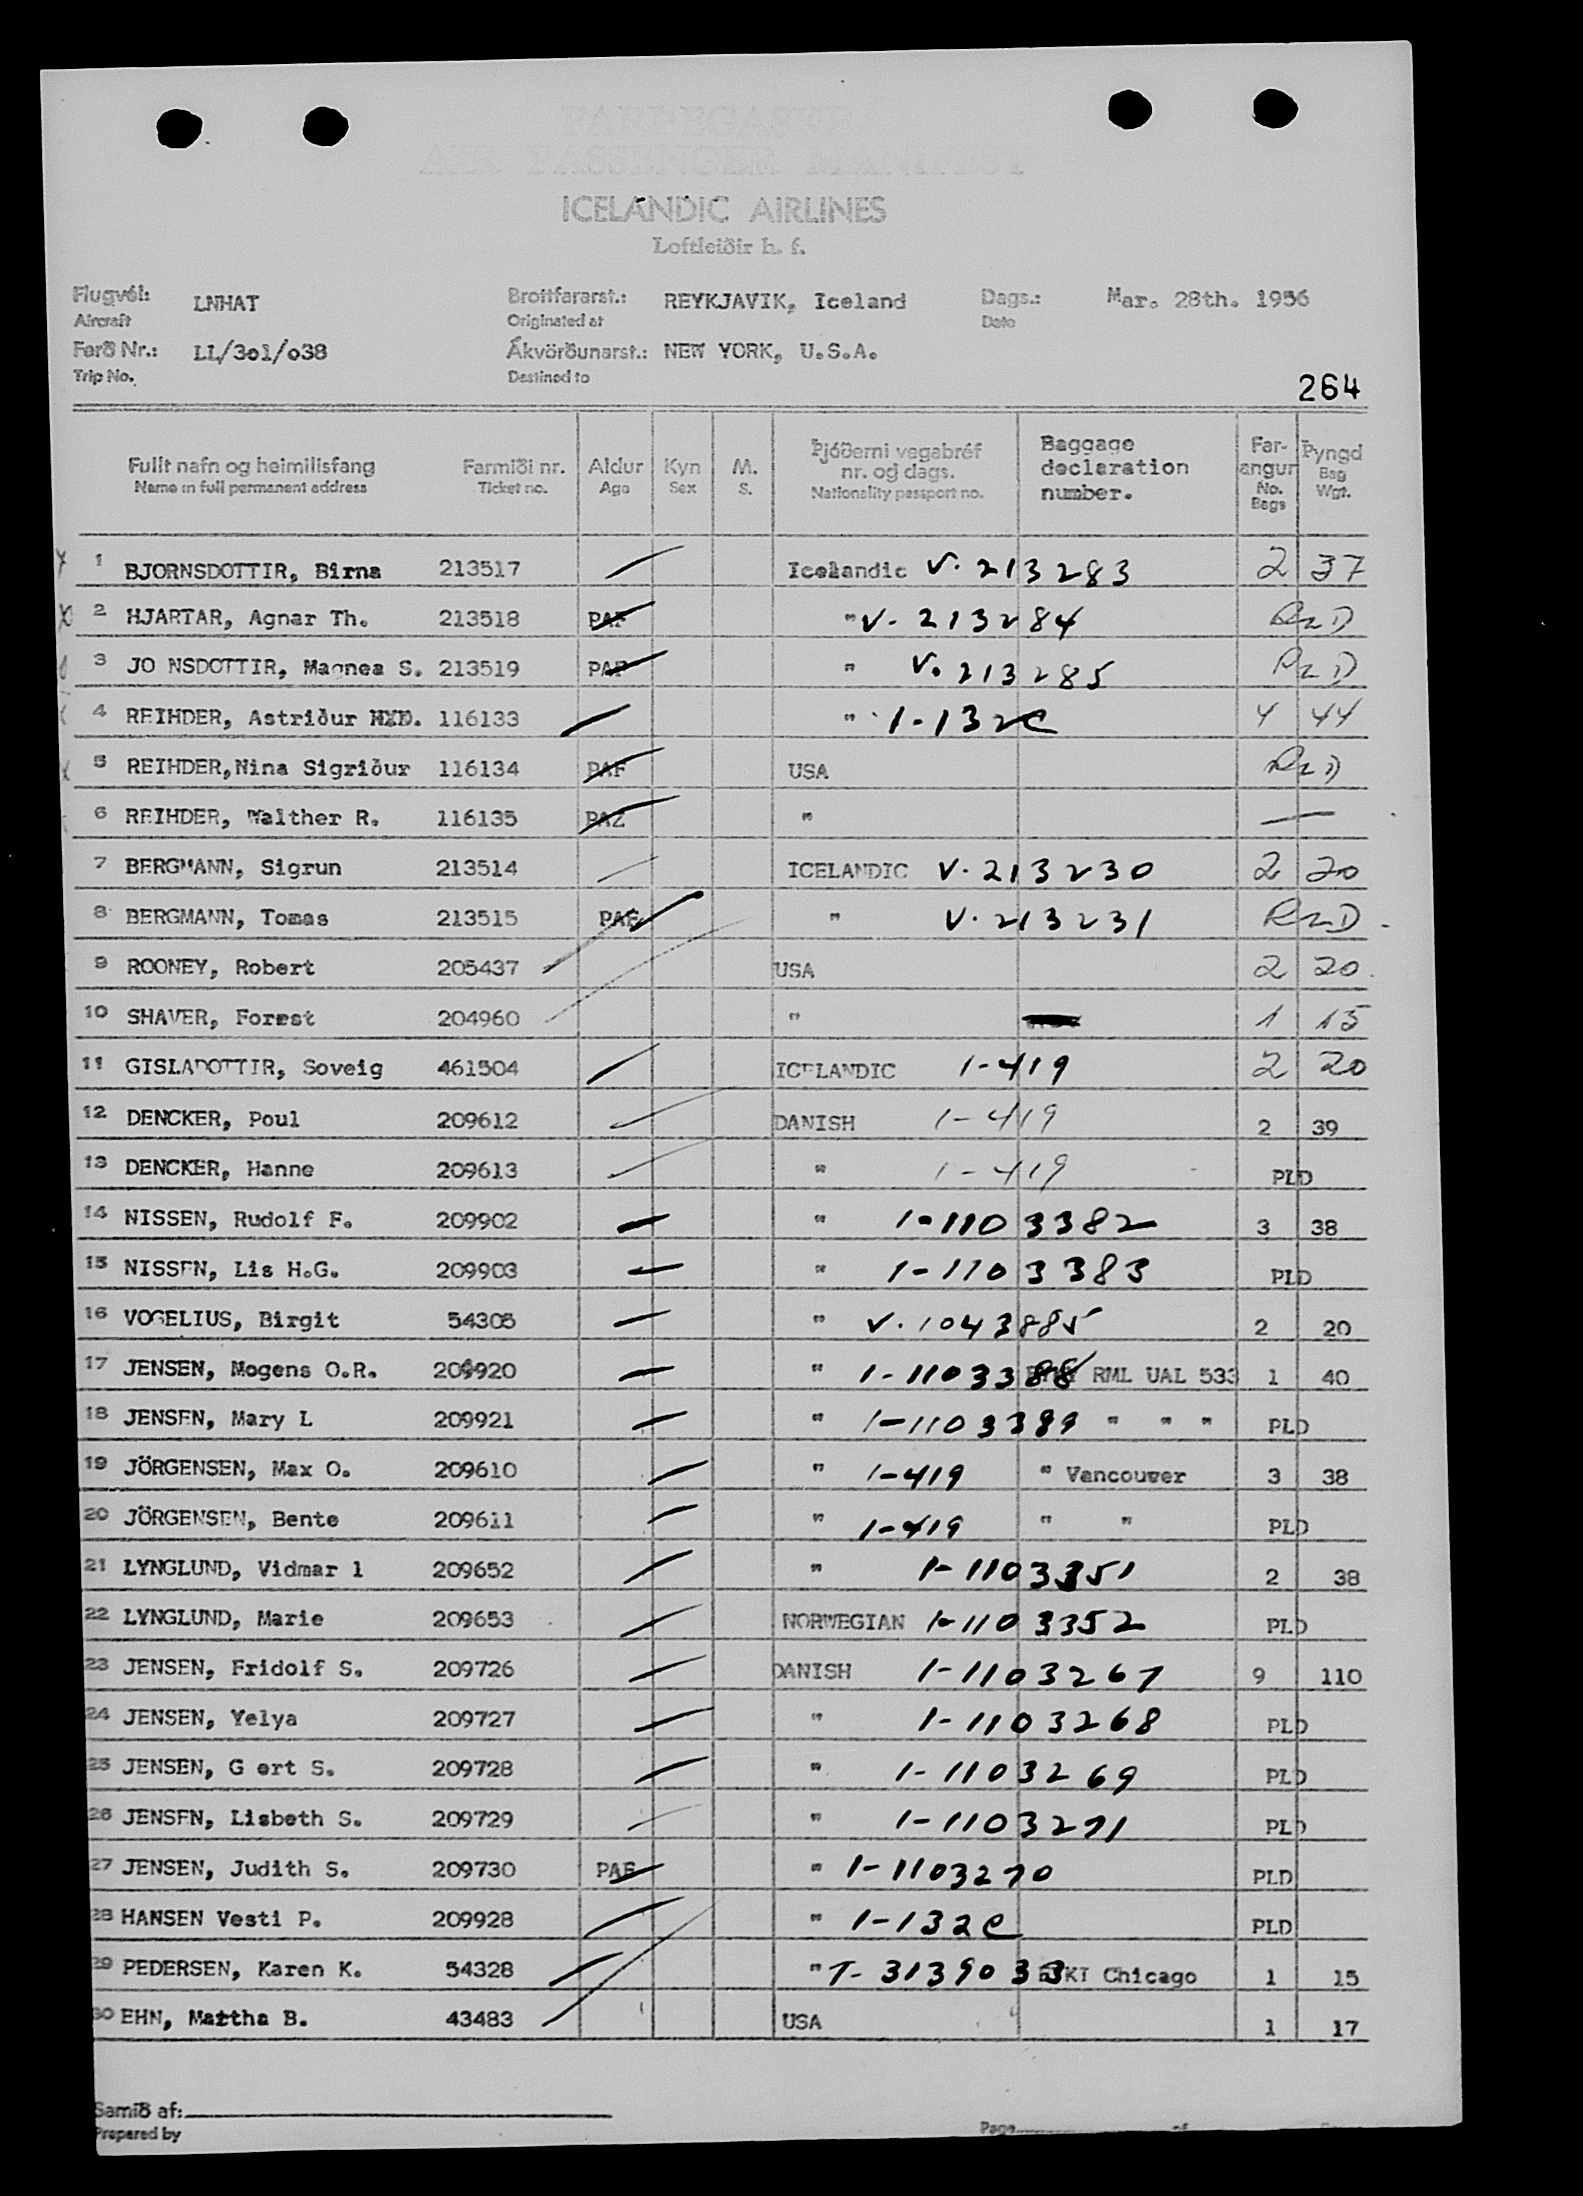 FARÞEGASKRÁ
AIR PASSENGER MANIFEST
ICELANDIC AIRLINES
Loftleiðir h. f.
Flugvél: LNHAT Brottfararst.: REYKJAVIK, Iceland Dags.: Mar. 28th. 1956
Aircraft Originated at Date
Ferð Nr.: LL/3o1/o38 Ákvörðunarst.: NEW YORK, U.S.A.
Trip No. Destined to
264
Fullt nafn og heimilisfang Farmiði nr. Aldur Kyn M. Þjóðerni vegabréf nr. og dags. Baggage declaration number. Far-angur Þyngd
Name in full permanent address Ticket no. Age Sex S. Nationality passport no. No. Bags Bag Wgt.
1 BJORNSDOTTIR, Birna 213517 Icelandic V. 213283 2 37
2 HJARTAR, Agnar Th. 213518 PAF " V. 213284
3 JO NSDOTTIR, Magnea S. 213519 PAF " V. 213285
4 REIHDER, Astriður 116133 " 1-132C 4 44
5 REIHDER,Nina Sigriður 116134 PAF USA
6 REIHDER, Walther R. 116135 PAZ "
7 BERGMANN, Sigrun 213514 ICELANDIC V. 213230 2 20
8 BERGMANN, Tomas 213515 PAF " V. 213231
9 ROONEY, Robert 205437 USA 2 20
10 SHAVER, Forest 204960 " 1 15
11 GISLADOTTIR, Soveig 461504 ICELANDIC 1-419 2 20
12 DENCKER, Poul 209612 DANISH 1-419 2 39
13 DENCKER, Hanne 209613 " 1-419 PLD
14 NISSEN, Rudolf F. 209902 " 1-1103382 3 38
15 NISSEN, Lis H.G. 209903 " 1-1103383 PLD
16 VOGELIUS, Birgit 54305 " V. 1043885 2 20
17 JENSEN, Mogens O.R. 209920 " 1-1103388 RML UAL 533 1 40
18 JENSEN, Mary L 209921 " 1-1103389 " " " PLD
19 JÖRGENSEN, Max O. 209610 " 1-419 " Vancouver 3 38
20 JÖRGENSEN, Bente 209611 " 1-419 " " PLD
21 LYNGLUND, Vidmar l 209652 " 1-1103351 2 38
22 LYNGLUND, Marie 209653 NORWEGIAN 1-1103352 PLD
23 JENSEN, Fridolf S. 209726 DANISH 1-1103267 9 110
24 JENSEN, Yelya 209727 " 1-1103268 PLD
25 JENSEN, G ert S. 209728 " 1-1103269 PLD
26 JENSEN, Lisbeth S. 209729 " 1-1103271 PLD
27 JENSEN, Judith S. 209730 PAF " 1-1103270 PLD
28 HANSEN Vesti P. 209928 " 1-132C PLD
29 PEDERSEN, Karen K. 54328 " T-3139033 Chicago 1 15
30 EHN, Martha B. 43483 USA 1 17
Samið af:
Prepared by Page of